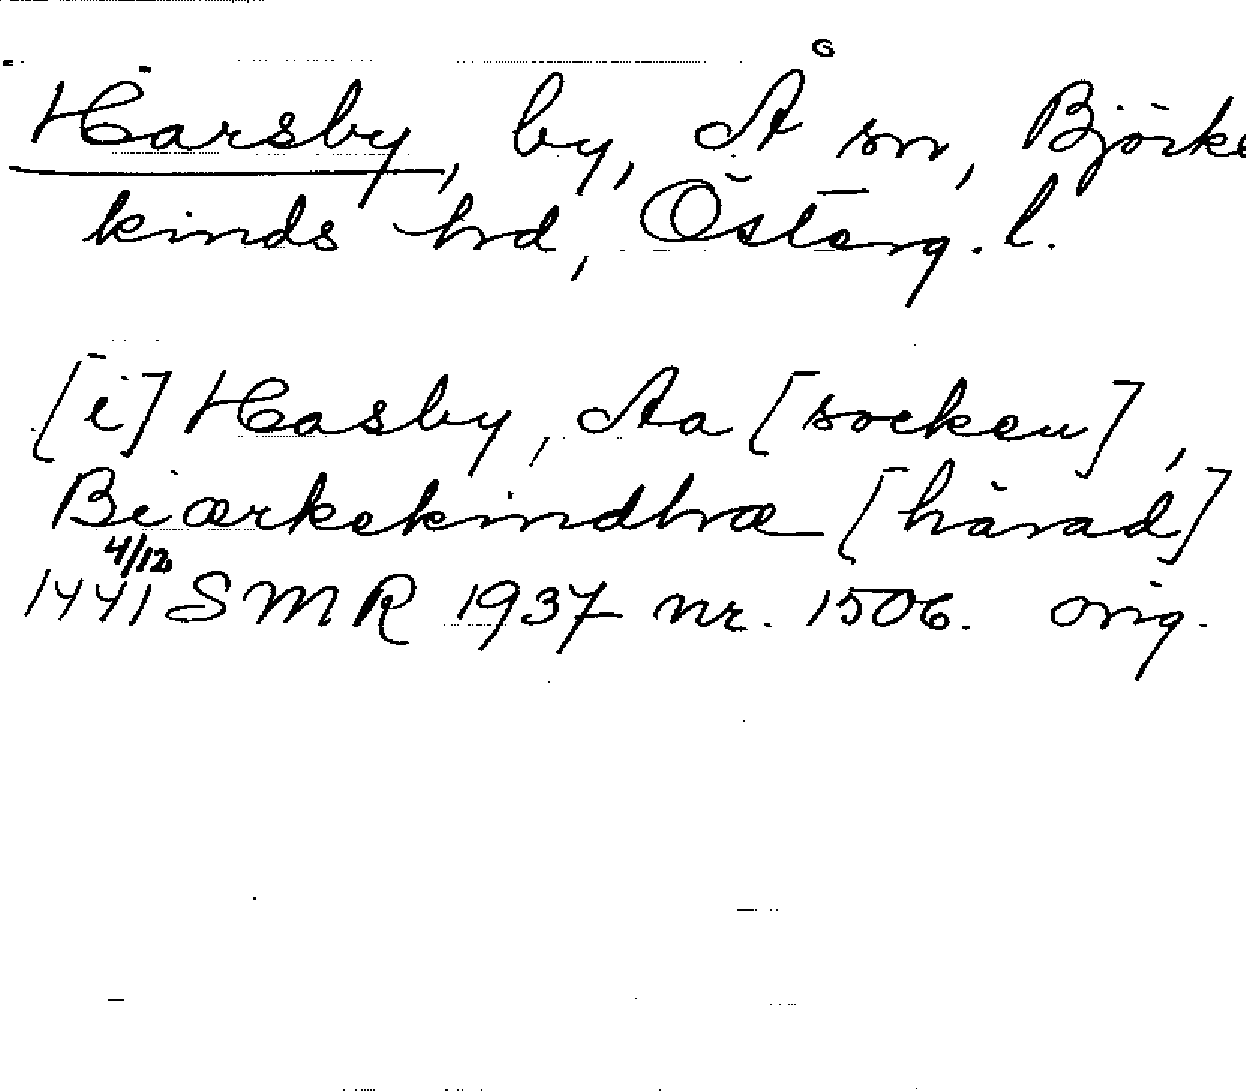 Härsby, by, Å sn, Björke
kinds hrd, Österg. l.
[i] Hasby, Aa [socken],
Biærkekindhræ [härad]
4/12
1441 SMR 1937 nr. 1506. orig.